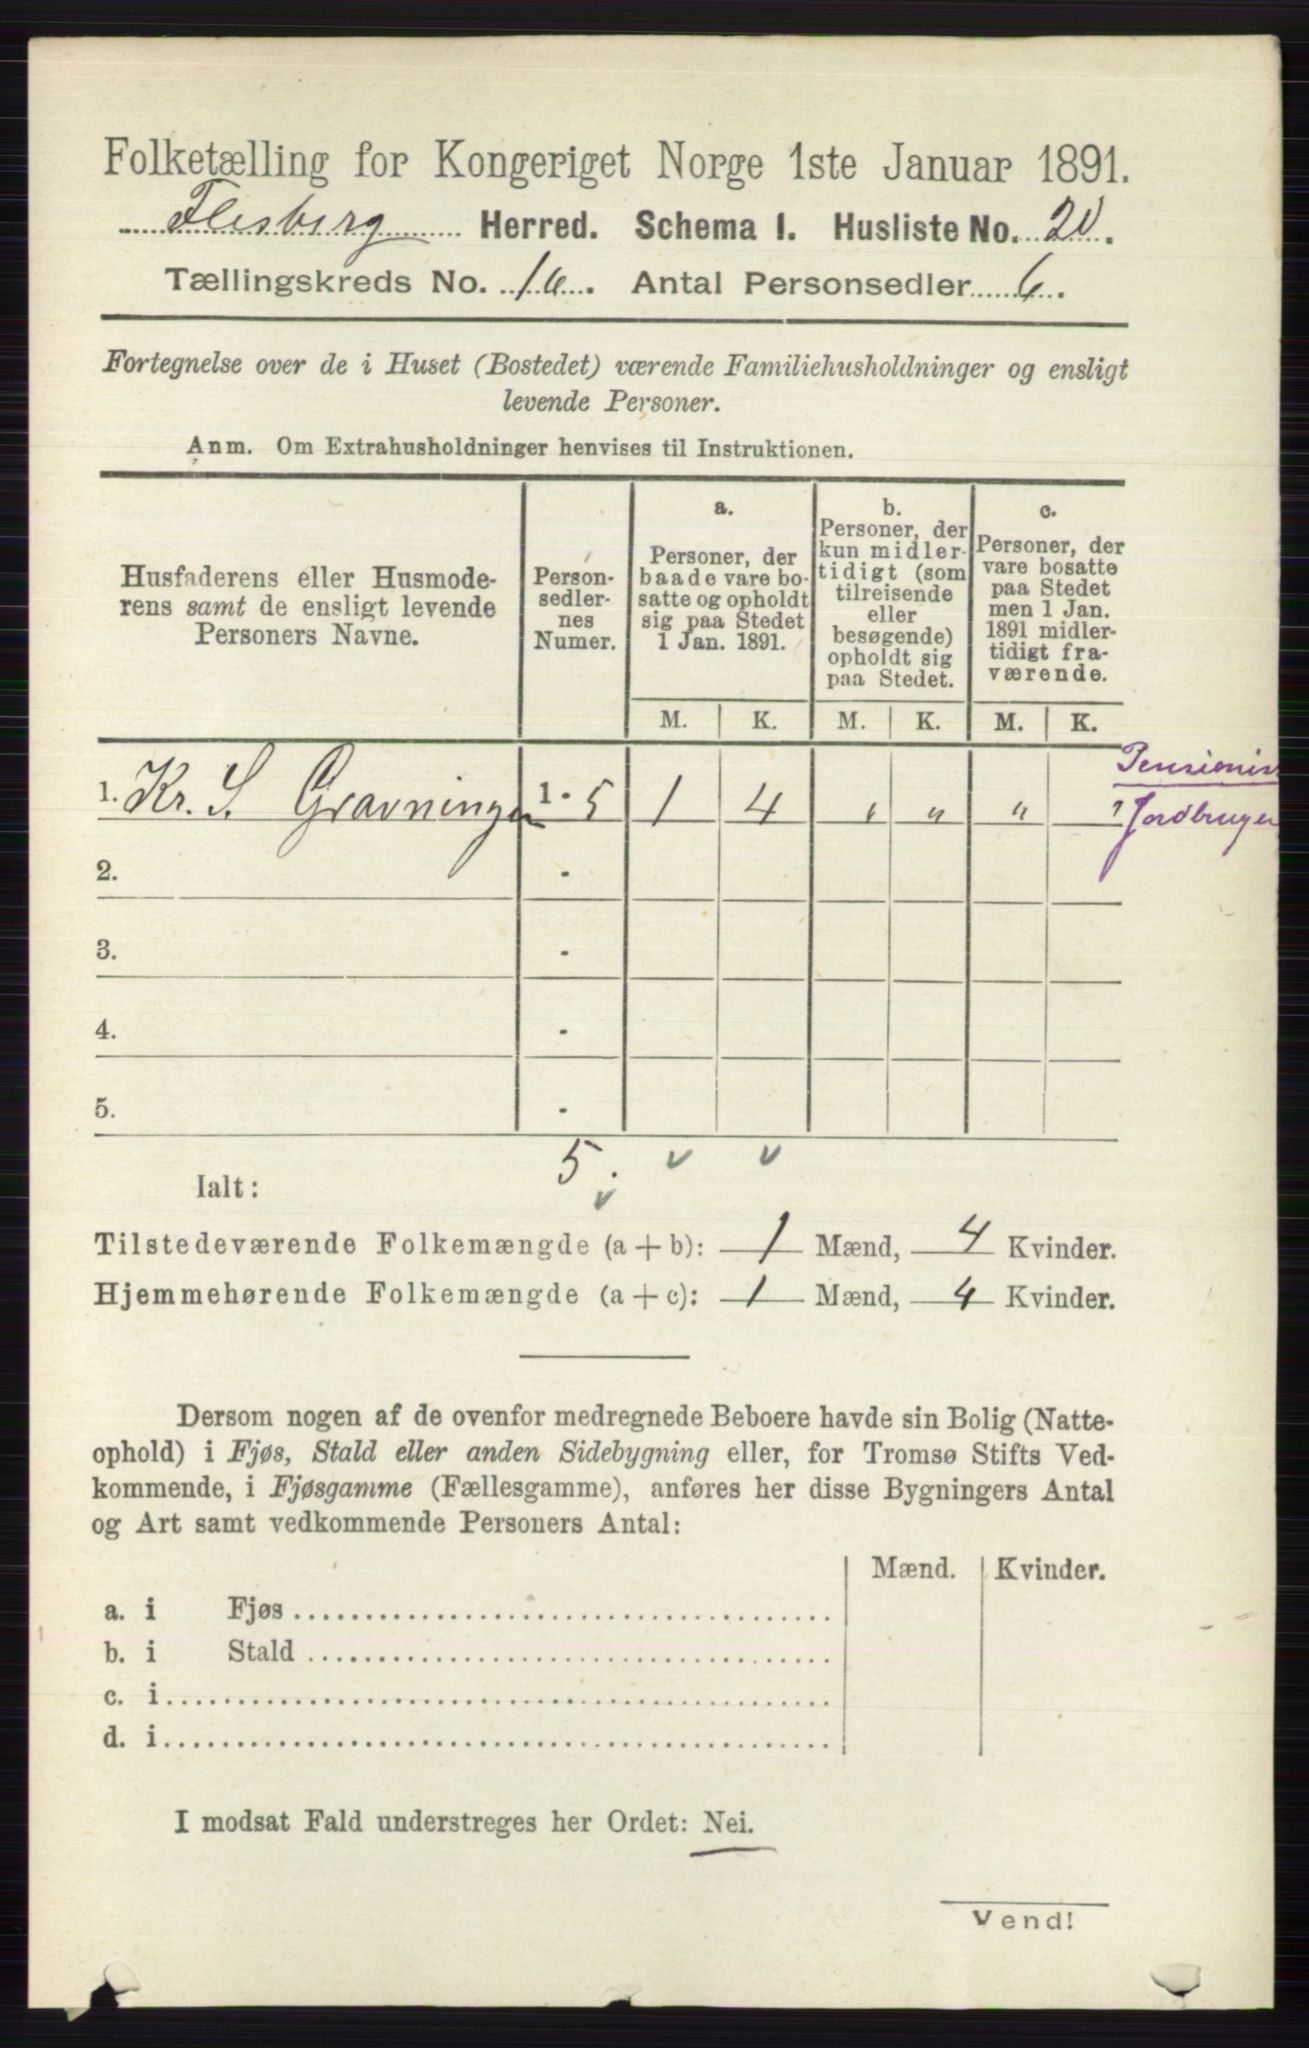 Folketælling for Kongeriget Norge 1ste Januar 1891.
Flesberg Herred. Schema I. Husliste No. 20.
Tællingskreds No. 10. Antal Personsedler 6.
Fortegnelse over de i Huset (Bostedet) værende Familiehusholdninger og ensligt
levende Personer.
Anm. Om Extrahusholdninger henvises til Instruktionen.
Husfaderens eller Husmode-
rens samt de ensligt levende
Personers Navne.
Person-
sedler-
nes
Numer.
a.
Personer, der
baade vare bo-
satte og opholdt
sig paa Stedet
1 Jan. 1891.
b.
Personer, der
kun midler-
tidigt (som
tilreisende
eller
besøgende)
opholdt sig
paa Stedet.
c.
Personer, der
vare bosatte
paa Stedet
men 1 Jan.
1891 midler-
tidigt fra-
værende.
M. K. M. K. M. K.
Pensionis
1. Kr. S Gravningen 1 - 5 1 4 " " " "
Jordbruger
2. -
3. -
4. -
5. -
5.
Ialt:
Tilstedeværende Folkemængde (a + b): 1 Mænd, 4 Kvinder.
Hjemmehørende Folkemængde (a + c): 1 Mænd, 4 Kvinder.
Dersom nogen af de ovenfor medregnede Beboere havde sin Bolig (Natte-
ophold) i Fjøs, Stald eller anden Sidebygning eller, for Tromsø Stifts Ved-
kommende, i Fjøsgamme (Fællesgamme), anføres her disse Bygningers Antal
og Art samt vedkommende Personers Antal:
Mænd. Kvinder.
a. i Fjøs
b. i Stald
c. i
d. i
I modsat Fald understreges her Ordet: Nei.
Vend!